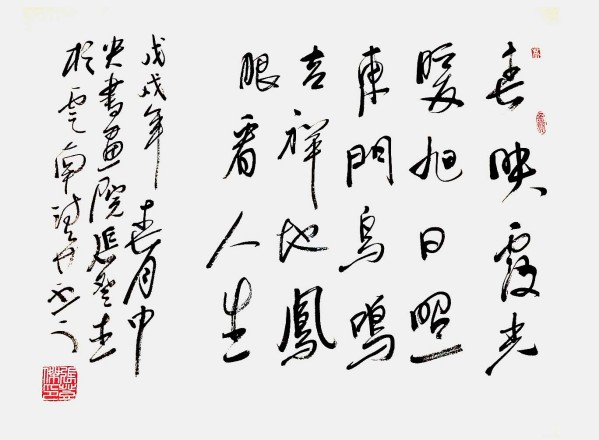 春映霞光
暖旭日照
東門鳥鳴
吉祥地鳳
眼看人生
戊戌年春月中
央書畫院張登
於雲南